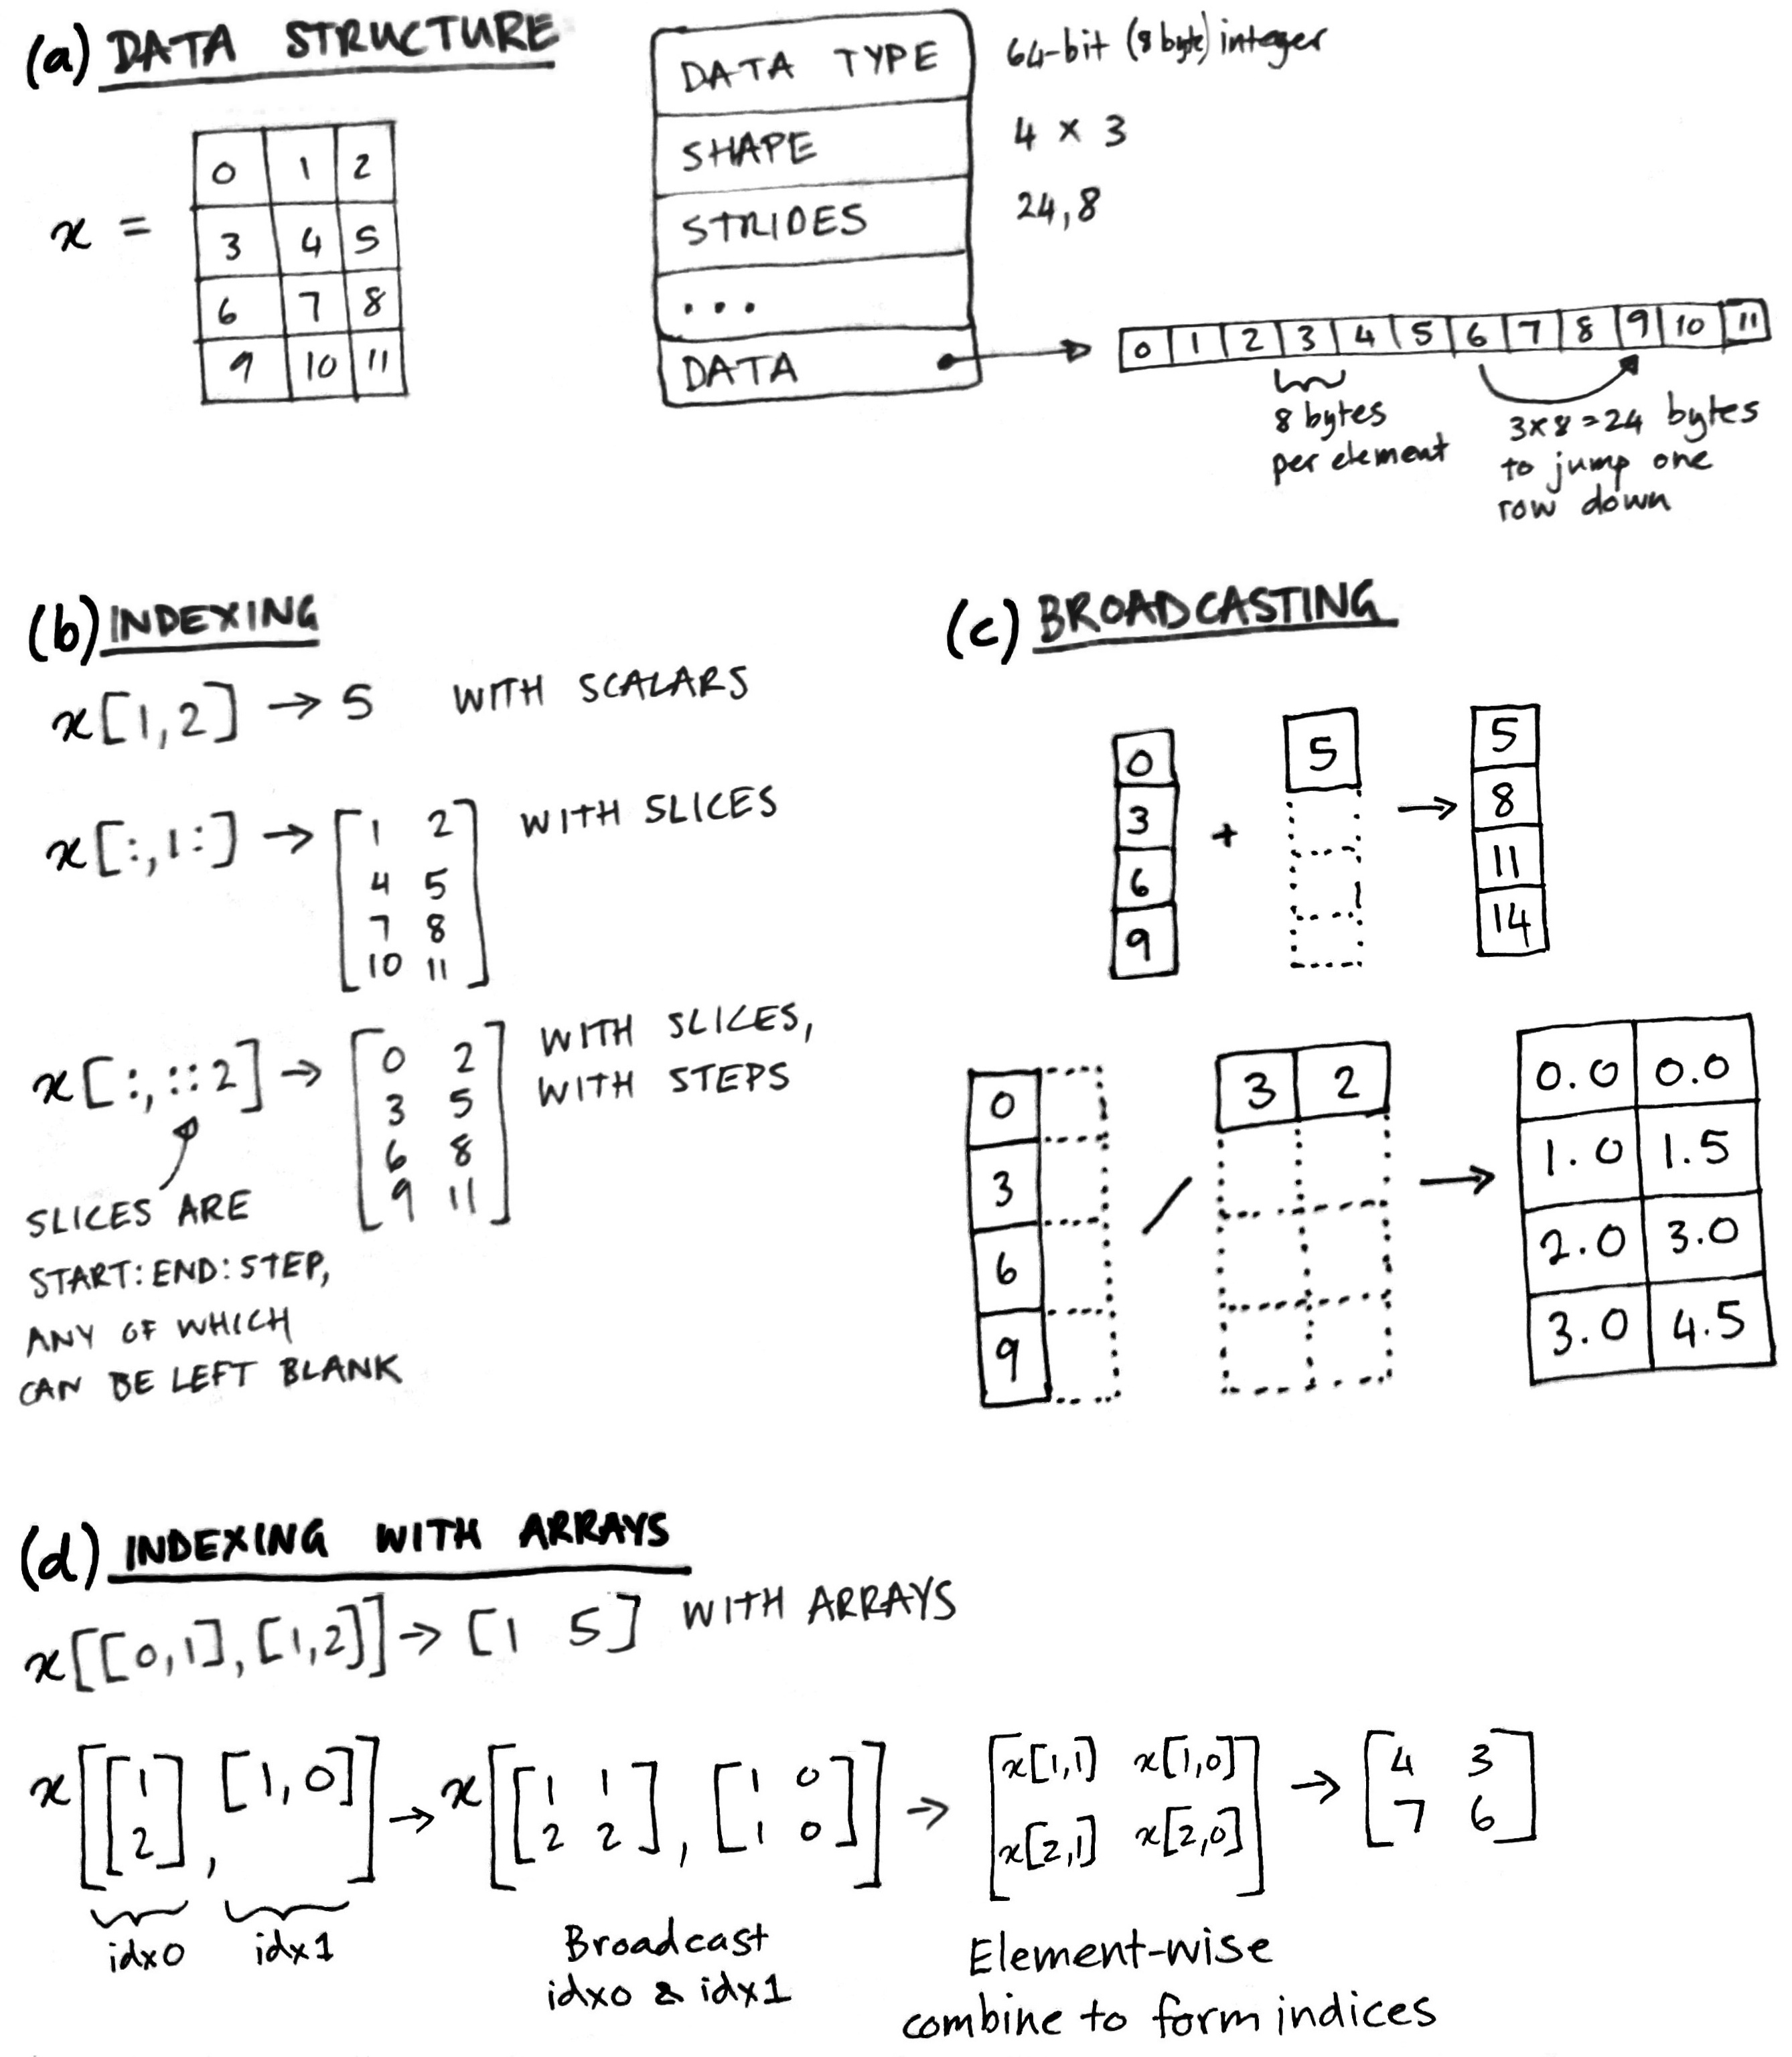 (a) DATA STRUCTURE
x =
0 1 2
3 4 5
6 7 8
9 10 11
DATA TYPE
64-bit (8 byte) integer
SHAPE
4 × 3
STRIDES
24,8
...
DATA
0 1 2 3 4 5 6 7 8 9 10 11
8 bytes
per element
3x8=24 bytes
to jump one
row down
(b) INDEXING
x[1,2] → 5 WITH SCALARS
x[:,1:] → WITH SLICES
1 2
4 5
7 8
10 11
x[:,::2] → WITH SLICES,
WITH STEPS
0 2
3 5
6 8
9 11
SLICES ARE
START:END:STEP,
ANY OF WHICH
CAN BE LEFT BLANK
(c) BROADCASTING
0
3
6
9
+
5
→
5
8
11
14
0
3
6
9
/
3 2
→
0.0 0.0
1.0 1.5
2.0 3.0
3.0 4.5
(d) INDEXING WITH ARRAYS
x[[0,1],[1,2]] → [1 5] WITH ARRAYS
x[[1 , [1,0]] → x[[1 1 , [1 0 → [x[1,1] x[1,0] → [4 3
2] 2 2] 1 0]] x[2,1] x[2,0]] 7 6]
idx0 idx1
Broadcast
idx0 & idx1
Element-wise
combine to form indices